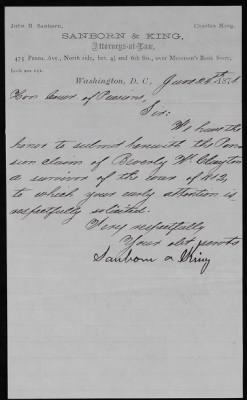 John B Sanborn, Charles King.
SANBORN & KING,
Attorneys-at-Law,
473 Penna. Ave., North side, bet. 4½ and 6th Sts., over Morrison's Book Store,
Washington, D. C., June 26th 187
Hon Comr of Pensions,
Sir:
We have the
honor to submit herewith the Pen-
sion claim of Beverly W. Clayton
a survivor of the war of 1812,
to which your early attention is
respectfully solicited.
Very respectfully
Your obt servts
Sanborn & King